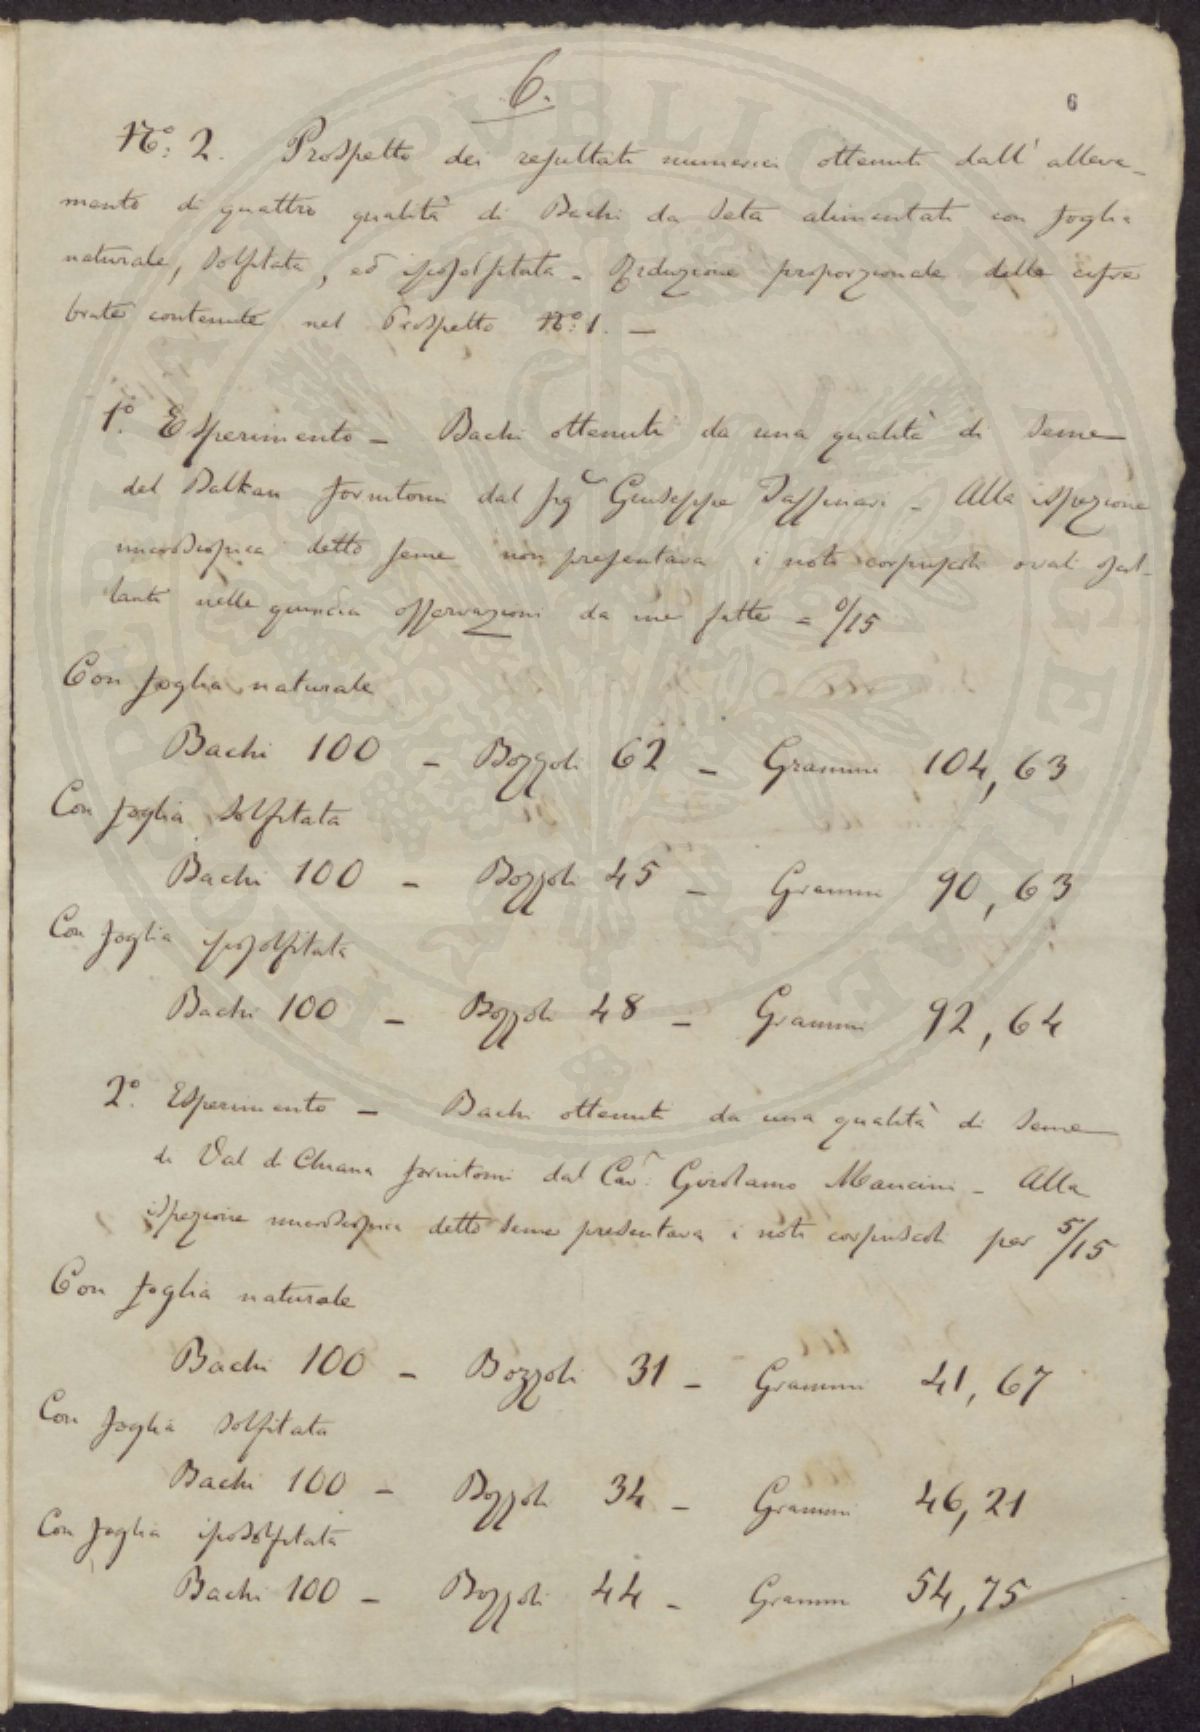 6.
6
N.º 2. Prospetto dei resultati numerici ottenuti dall' alleva-
mento di quattro qualità di Bachi da Seta alimentati con foglia
naturale, Solfitata, ed iposolfitata - Riduzione proporzionale delle cifre
brute contenute nel Prospetto N.º 1. -
1º. Esperimento - Bachi ottenuti da una qualità di Seme
del Balkan fornitomi dal Sigr Giuseppe - Alla ispezione
microscopica detto seme non presentava i noti corpuscoli ovali
nelle quindici osservazioni da me fatte = 0/15
Con foglia naturale
Bachi 100 - Bozzoli 62 - Grammi 104,63
Con foglia Solfitata
Bachi 100 - Bozzoli 45 - Grammi 90,63
Con foglia iposolfitata
Bachi 100 - Bozzoli 48 - Grammi 92,64
2º. Esperimento - Bachi ottenuti da una qualità di Seme
di Val di Chiana fornitomi dal Cavr: Girolamo Mancini - Alla
ispezione microscopica detto Seme presentava i noti corpuscoli per 5/15
Con foglia naturale
Bachi 100 - Bozzoli 31 - Grammi 41,67
Con foglia Solfitata
Bachi 100 - Bozzoli 34 - Grammi 46,21
Con foglia iposolfitata
Bachi 100 - Bozzoli 44 - Grammi 54,75